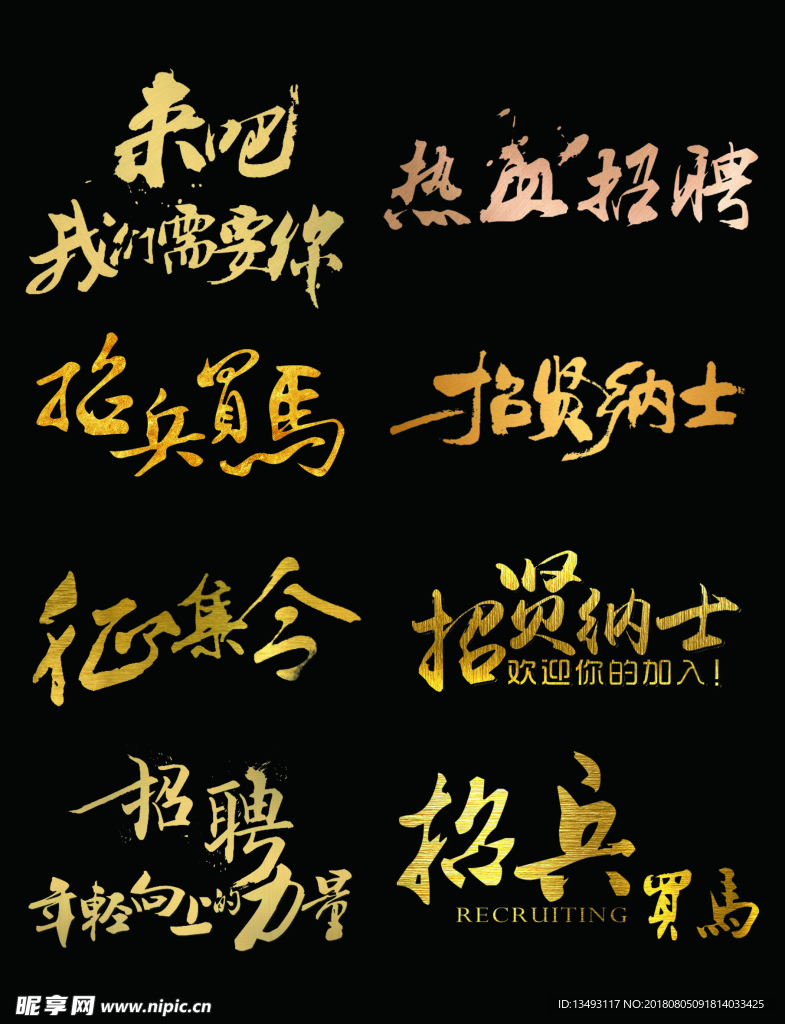 来吧
我们需要你
热血招聘
招兵買馬
招贤纳士
征集令
招贤纳士
欢迎你的加入!
招聘
年輕向上的力量
招兵
買馬
RECRUITING
昵享网 www.nipic.cn
ID:13493117 NO:20180805091814033425